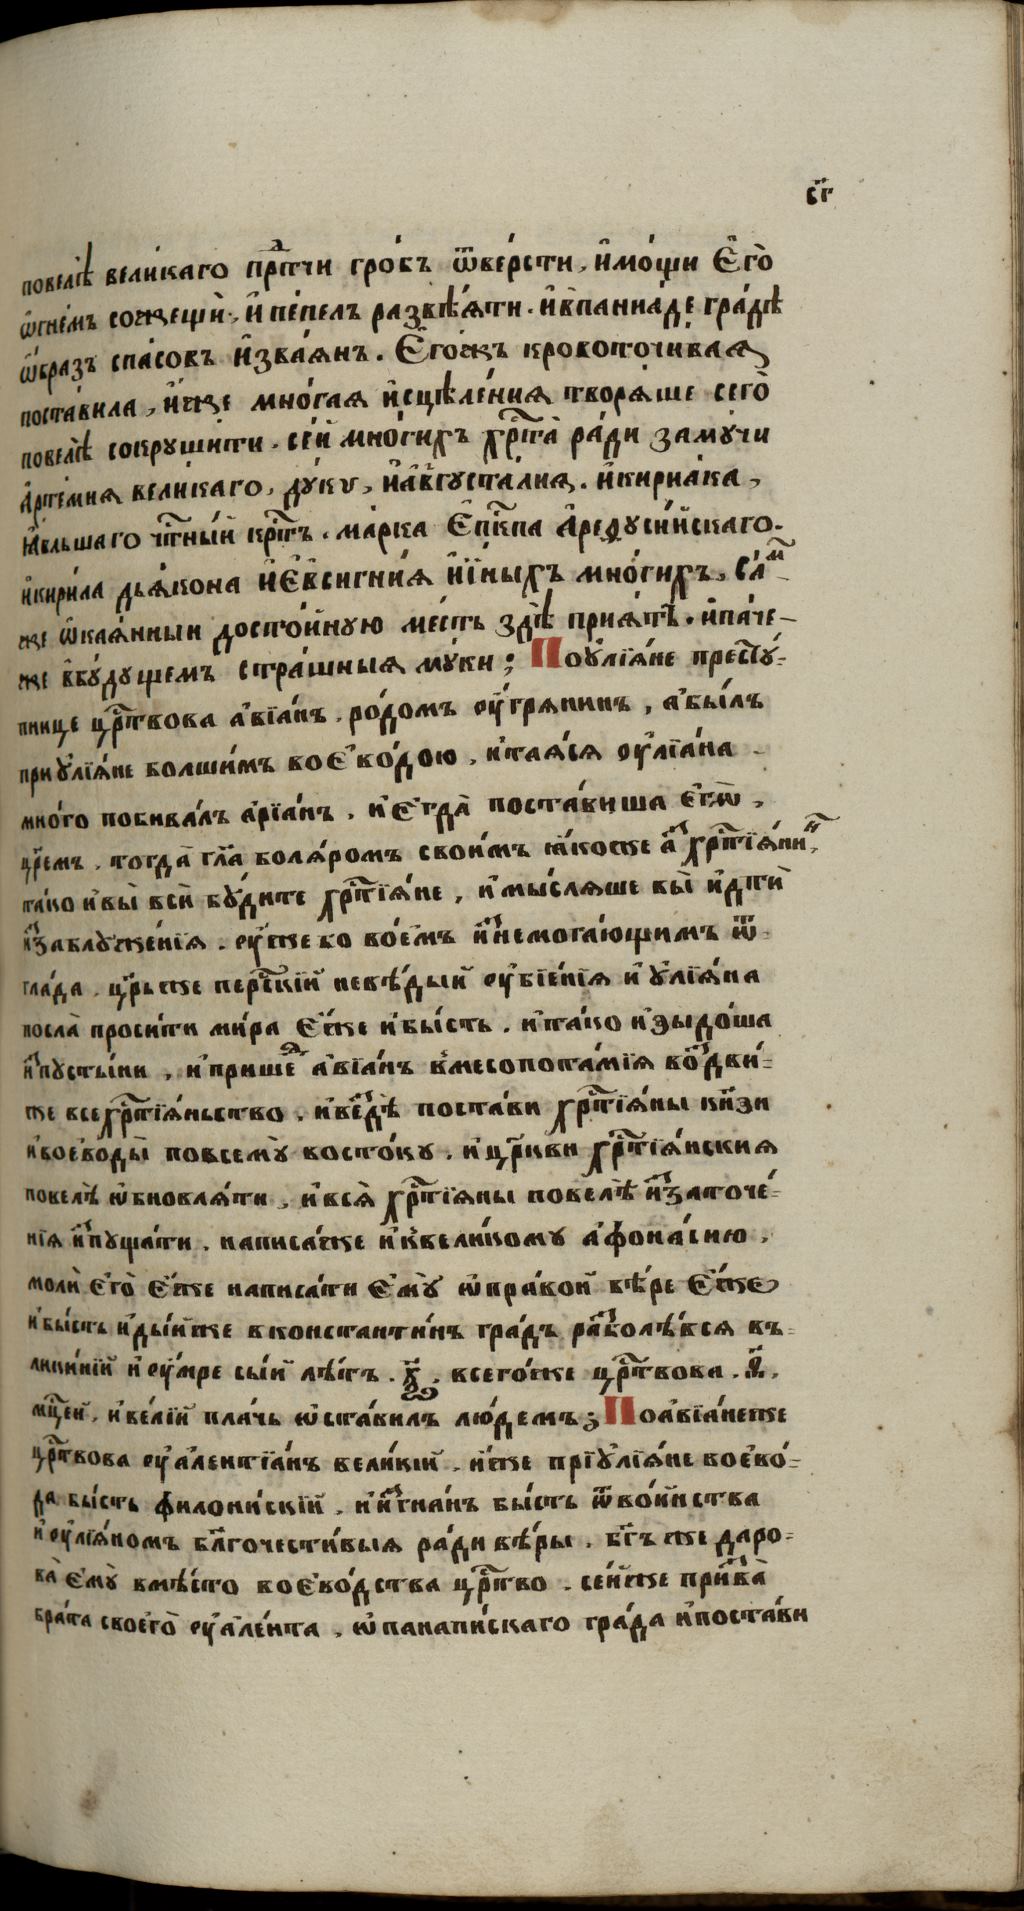 сг҃і
повелѣ вели́каго прⷣтчи гро́бъ ѿве́рсти, и҆мо́щи Є҆го̀
ѡ҆гне́мъ сожещѝ, и҆ пе́пелъ развѣ́яти. и҆в̾панїа́де гра́дѣ
ѡ҆́бразъ спа́совъ и҆зва́янъ. Є҆го́жъ кровоточи́вая
поста́вила, и҆́же мно́гая и҆сцѣле́ния творя́ше сего̀
повелѣ̀ сокруши́ти. се́й мно́гихъ хрⷭ҇та̀ ра́ди заму́чи
А҆рте́мия вели́каго, ду́кꙋ, и҆а҆́вгуста́лия. и҆кириа́ка,
ꙗ҆́вльшаго чтⷭ҇ны́й крⷭ҇тъ. ма́рка Є҆пⷭ҇кпа А҆реѳуси́йскаго.
и҆кири́ла дья́кона и҆Є҆́всигни́я и҆и҆́ныхъ мно́гихъ. Са́ⷨ
же ѡ҆кая́нныи досто́йную ме́сть здѣ̀ прия́тъ. и҆па́че-
же в̾бу́дущемъ стра́шныя му́ки; Поу҆лїя́не престу́-
пнице црⷭ҇твова а҆вїа́нъ, ро́домъ ѹ҆́грянинъ, а҆бы́лъ
приꙋ҆лїя́не болши́мъ воє҆во́дою, и҆тая́ся ѹ҆лїа́на
мно́го побива́лъ а҆рїа́нъ, и҆є҆гда̀ поста́виша є҆гѡ̀,
цр҃е́мъ, тогда̀ гл҃а боля́ромъ свои́мъ ꙗ҆́коже а҆́зъ хрⷭ҇тїя́ниⷩ,
та́ко и҆вы̀ всѝ бу́дите хрⷭ҇тїя́не, и҆мы́сляше вы̀ и҆́дтѝ
и҆ꙁ̾заблуже́нїя. ѹ҆́же бо во́емъ и҆з̾немога́ющимъ ѿ
гла́да, цр҃ь же пе́рⷭ҇кїй невѣ́дый ѹ҆бїе́нїя и҆ ꙋ҆лїя́на
посла̀ проси́ти ми́ра Є҆́же и҆бы́сть. и҆та́ко и҆зыдо́ша
и҆с̾пусты́ни, и҆ прише́ⷣ а҆вїа́нъ к̾месопота́мїя воз̾дви́-
же всехрⷭ҇тїя́ньство, и҆ве́здѣ поста́ви хрⷭ҇тїя́ны кн҃зи
и҆воево́ды повсему̀ восто́ку, и҆ цр҃кви хрⷭ҇тїя́нския
повелѣ̀ ѡ҆бновля́ти, и҆вся̀ хрⷭ҇тїя́ны повелѣ̀ и҆ꙁ̾заточе́-
нїя и҆с̾пуща́ти. написа́же и҆к̾вели́кому а҆фона́сию,
моля̀ є҆го̀ є҆́же написа́ти є҆мꙋ̀ ѡ҆пра́вой вѣ́ре Є҆́же
и҆бы́сть и҆ды́йже вконстанти́нъ гра́дъ раз̾болѣ́вся въ-
ликинїй и҆ ѹ҆́мре сы́й лѣ́тъ .ѯ҃. всего́же црⷭ҇твова .ѳ҃.
мцⷭ҇ей, и҆ве́лїй пла́чь ѡ҆ста́вилъ лю́демъ; Поа҆вїа́неже
црⷭ҇твова ѹ҆але́нтїа́нъ вели́кїй, и҆́же прїꙋ҆лїя́не воево́-
да бы́сть филони́скїй, и҆и҆з̾гна́нъ бы́сть ѿво́йнства
и҆ ѹ҆лїя́номъ бл҃гочести́выя ра́ди вѣ́ры, бг҃ъ же даро-
ва̀ є҆мꙋ̀ вмѣ́сто воево́дства црⷭ҇тво. се́йже приз̾ва̀
бра́та своего̀ ѹ҆але́нта, ѡ҆панапи́скаго гра́да и҆поста́ви